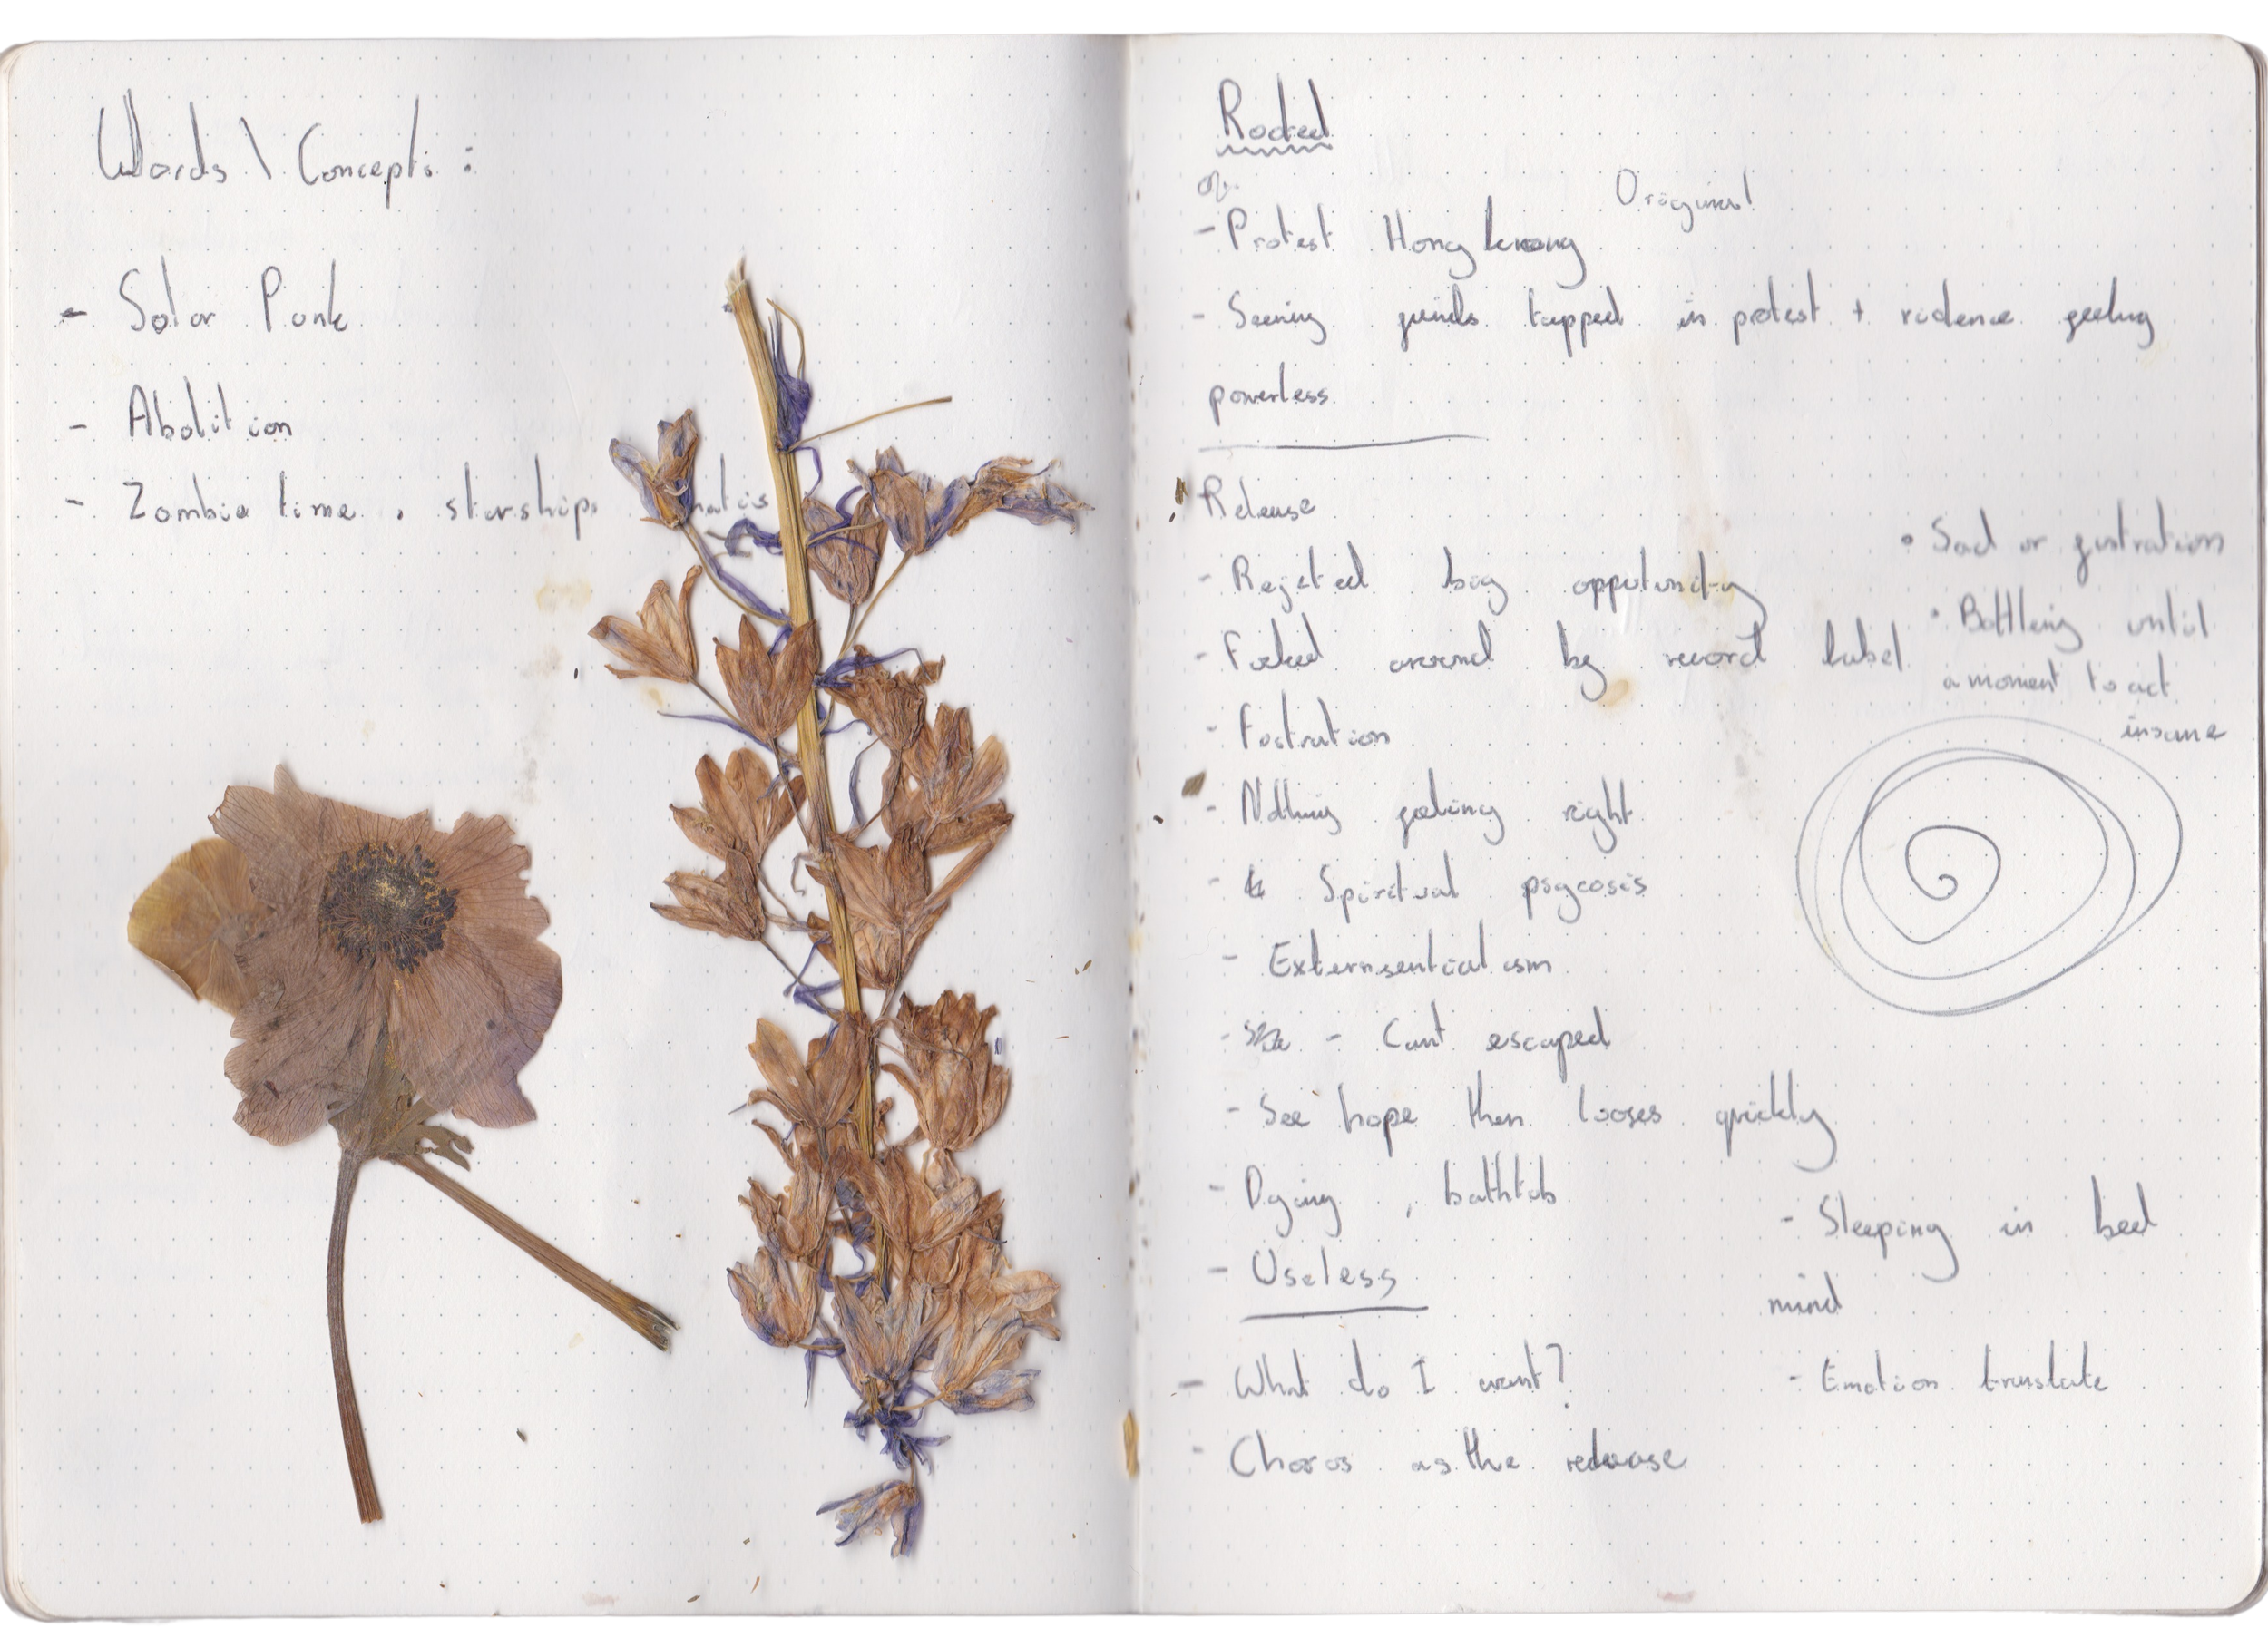 Words \ Concepts :
- Solar Punk
- Abolition
- Zombie time . starships
Rooted
Original
- Protest Hong kong
- Seeing friends trapped in protest + violence feeling
powerless
Release
- Rejeted big opputunity
- Fucked around by record label
- Fustration
- Nothing feeling right
- Spiritual psycosis
- Externsentialism
- Cant escaped
- See hope then looses quickly
- Dying , bathtub
- Useless
- What do I want?
- Choros as the release
• Sad or fustration
• Bottling until
a moment to act
insane
- Sleeping in bed
mind
- Emotion translate